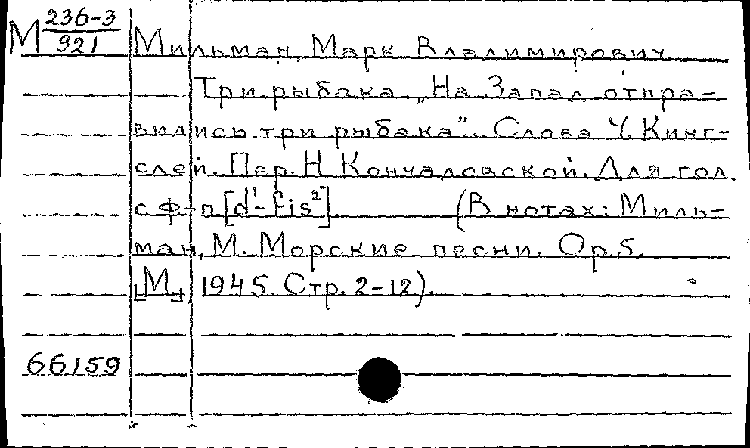 М 236-3
921
Мильман, Марк Владимирович
Три рыбака. „На Запад отпра-
вились три рыбака". Слова Ч. Кинг-
слей. Пер. Н. Кончаловской. Для гол.
с ф-п [d¹-fis²]. (В нотах: Миль-
ман, М. Морские песни. Op. 5.
[М.], 1945. Стр. 2-12).
66159